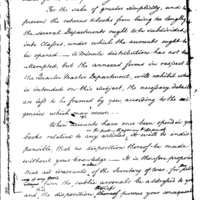 For the sake of greater simplicity, and to
prevent the returns & books from being too lengthy
the several Departments ought to be subdivided
into Classes, under which the accounts ought to
be opened. — A minute distribution has not been
attempted, but the annexed forms in respect to
the Quarter Master Department, will exhibit what
is intended on this subject, the necessary details
are left to be framed by you according to the
gencies which may occur. —
When accounts have once been opened in your
books relative to any articles, it will be indis
pensible, that no disposition thereof be made
without your knowledge — It is therefore propose
that all warrants of the Secretary of War, for
from the public arsenals be addressed to you
and, the disposition thereof